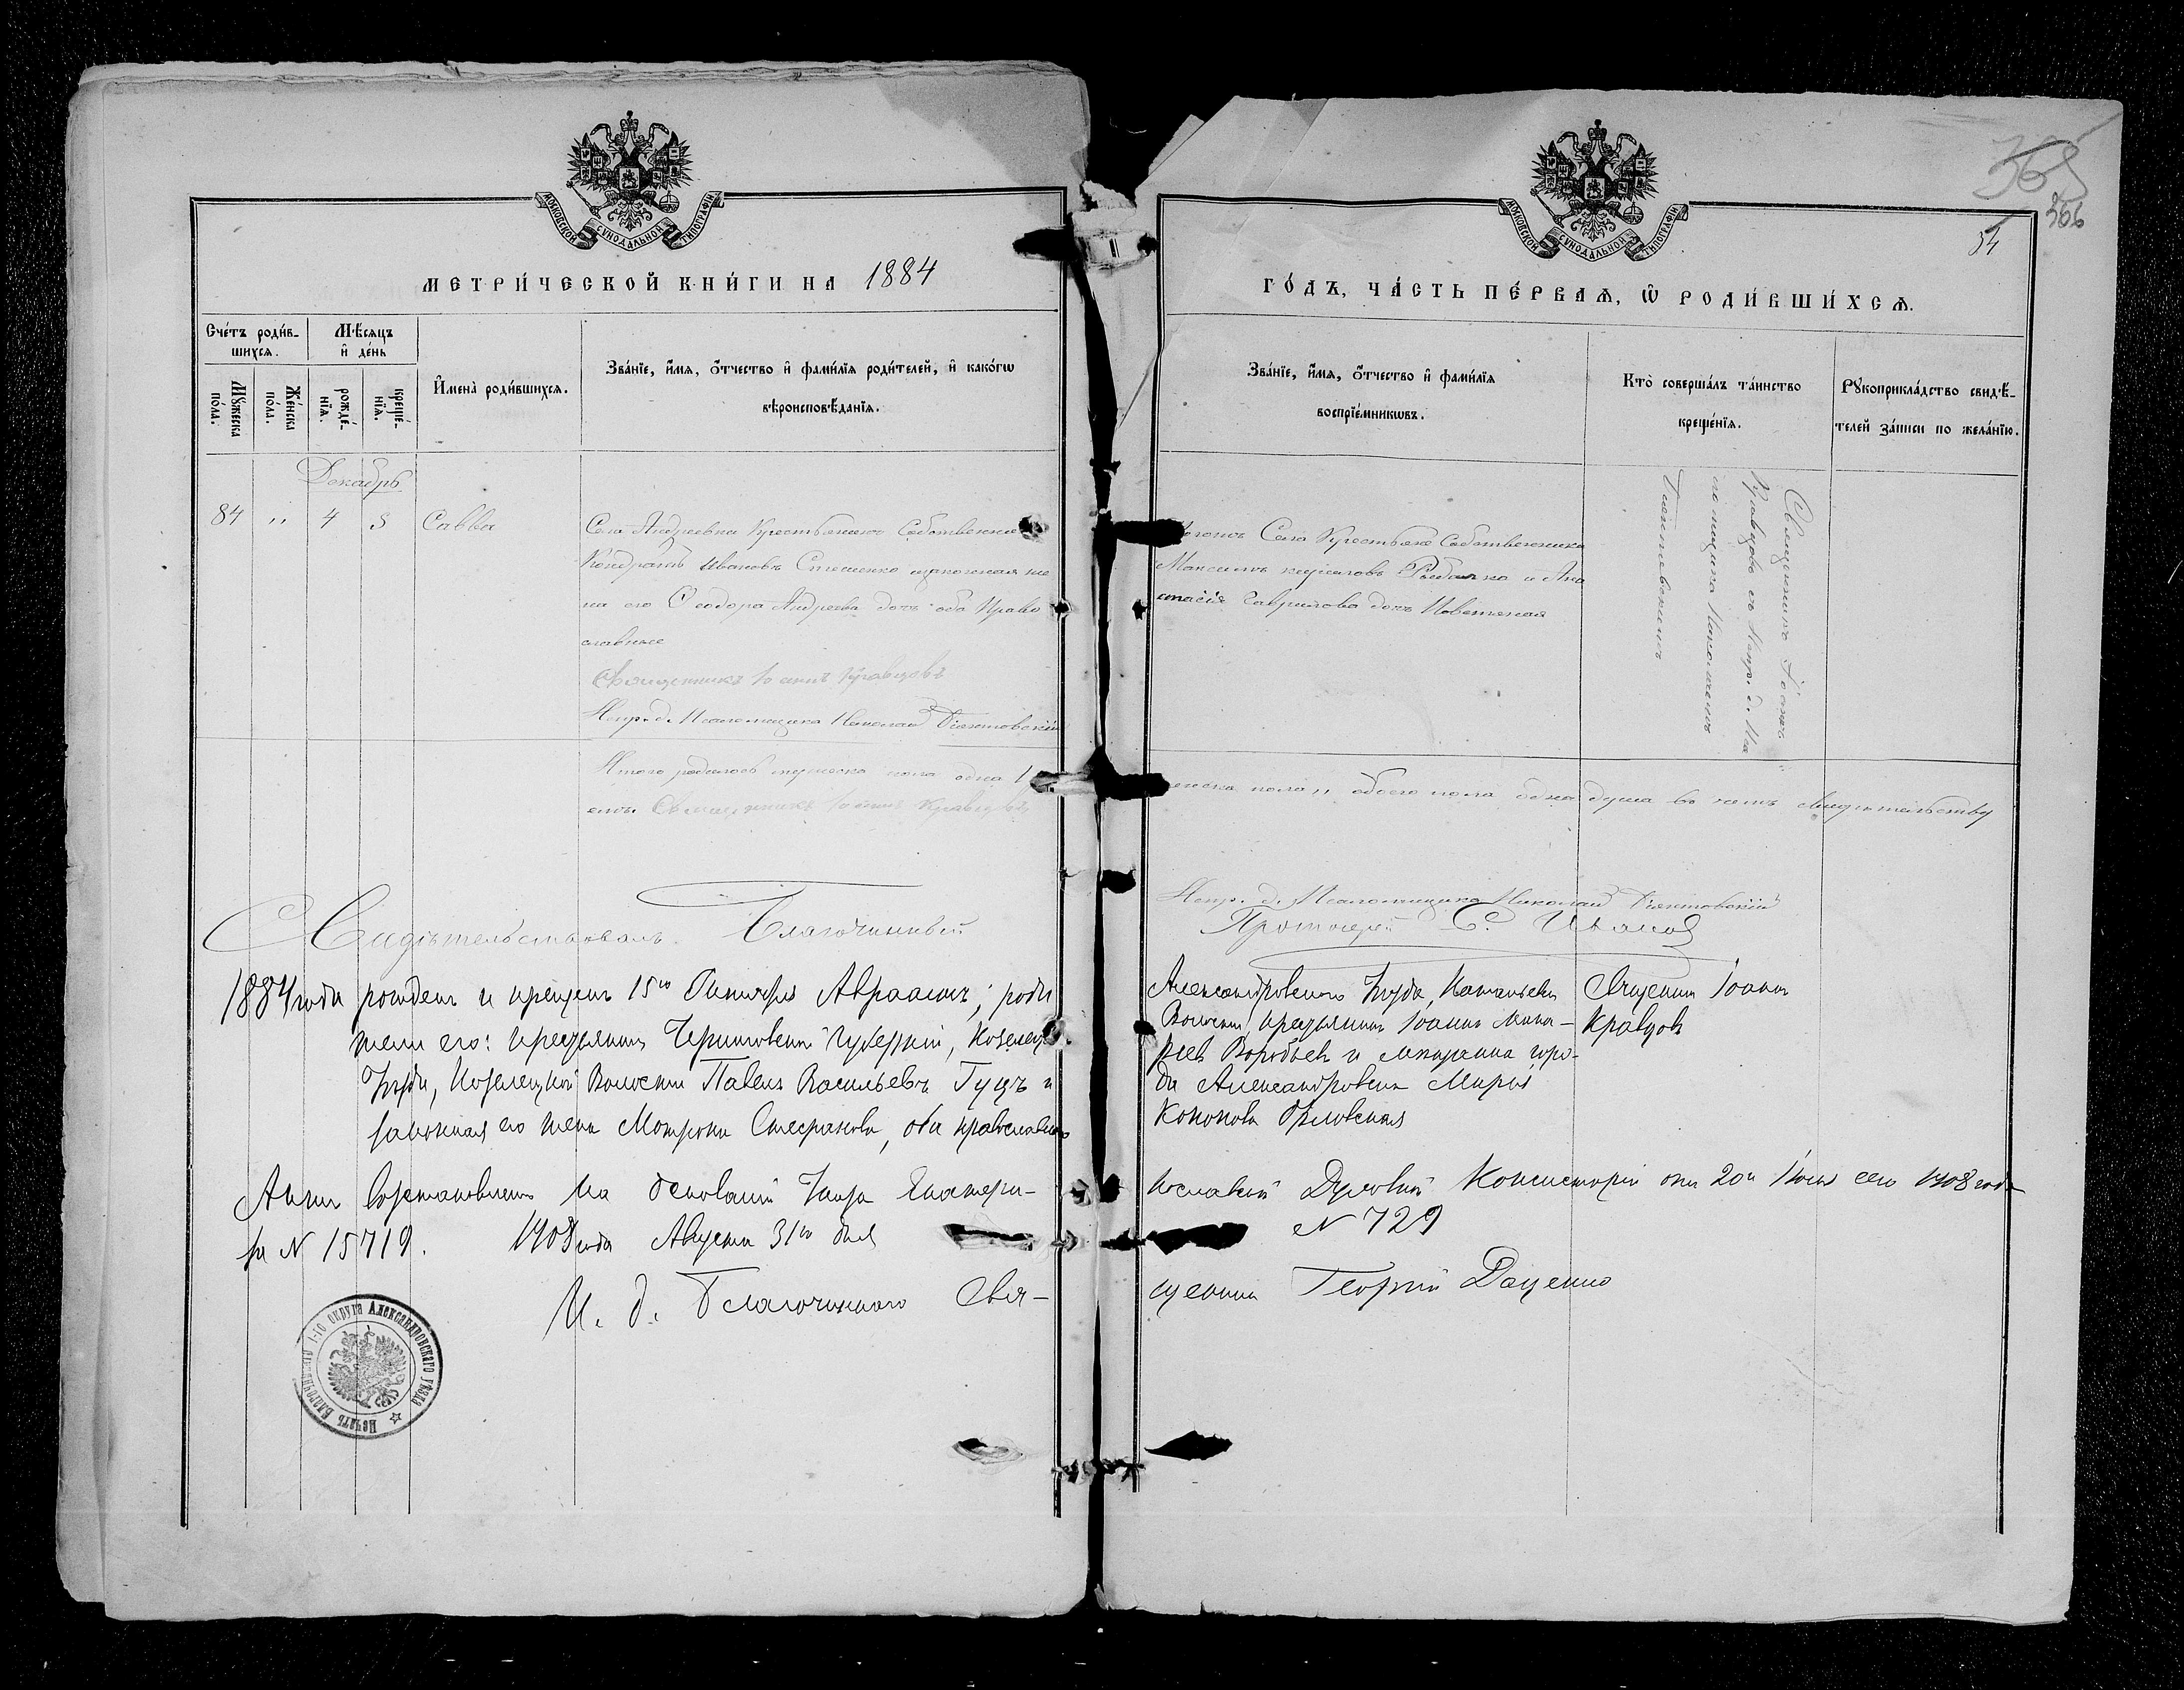 МОСКОВСКОЙ СУНОДАЛЬНОЙ ТИПОГРАФІИ
МЕТРИ́ЧЕСКОЙ КНИ́ГИ НА 1884
Сче́тъ роди́в-
шихся.
Мѣ́сяцъ
и҆ де́нь
Мꙋ́жеска
по́ла.
Же́нска
по́ла.
рожде́-
нїя.
креще́-
нїя.
И҆мена̀ роди́вшихся.
Зва́нїе, и҆́мя, ѻ҆́тчество и҆ фами́лїя роди́телей, и҆ како́гѡ
вѣроисповѣ́данїя.
Декабрь
84 " 4 5 Савва
Села Андреевки Крестьянинъ Собственникъ
Кондратъ Ивановъ законная же
на его Ѳеодора Андреева дочь оба Право
славные
Священникъ Іоаннъ Кравцовъ
Испр. д. Псаломщика Николай
Итого родилось мужеска пола одна 1
емъ. Священникъ Іоаннъ Кравцовъ
Свидѣтельствовалъ. Благочинный
1884 года рожденъ и крещенъ 15го Октября Авраамъ; роди
тели его: крестьянинъ Черниговской Губерніи, Козелец
Уѣзда, Козелецкой Волости Павелъ Васильевъ Гуцъ и
законная его жена Матрона Стефанова, оба православные
Актъ возстановленъ на основаніи Указа Екатери-
за N 15719. 1908 года Августа 31го дня
И. д. Благочиннаго Свя-
Печать Благочиннаго 1-го округа Александровскаго уѣзда
МОСКОВСКОЙ СУНОДАЛЬНОЙ ТИПОГРАФІИ
365
366
54
ГО́ДЪ, ЧА́СТЬ ПЕ́РВАЯ, Ѡ҆ РОДИ́ВШИ́ХСЯ.
Зва́нїе, и҆́мя, ѻ҆́тчество и҆ фами́лїя
воспрїе́мникѡвъ.
Кто̀ соверша́лъ та́инство
креще́нїя.
Рꙋкоприкла́дство свидѣ́-
телей за́писи по жела́нїю.
Села Крестьяне Собственники
Максимъ и Ана
стасія Гаврилова дочь
Священникъ Іоаннъ
Кравцовъ съ Испр. д. Пса
ломщика Николаемъ
женска пола " обоего пола одна душа въ чемъ свидѣтельству
Испр. д. Псаломщика Николай
Протоіерей С. Иванов
Александровскаго Уѣзда,
Волости, крестьянинъ Іоаннъ Мака-
ріевъ Воробьевъ и мѣщанка горо-
да Александровска Марія
Кононова Орловская
Священникъ Іоаннъ
Кравцовъ
нославской Духовной Консисторіи отъ 20го Іюня сего 1908 года
N 729
щенникъ Георгій Даценко